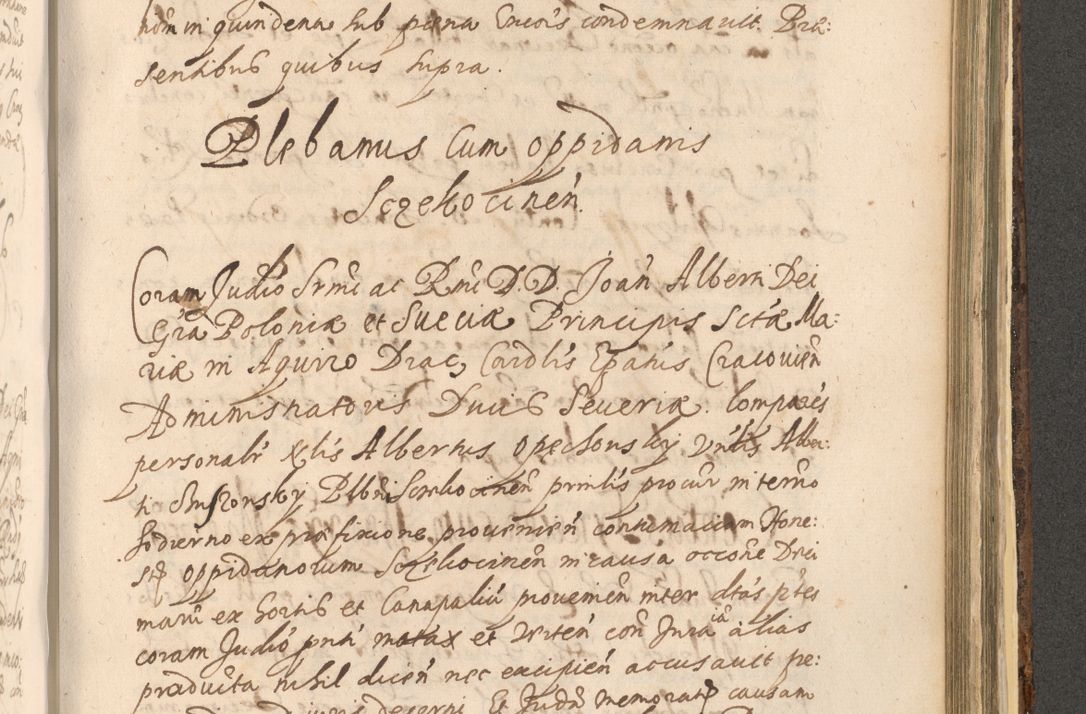 nōm in quindena sub pæna Excōis condemnavit. Præ:
sentibus quibus supra.
Plebanus Cum oppidanis
Sczekocinēn.
Coram Judīo Srm̄i ac Rm̄i D.D. Joān Alberti Dei
Grā Poloniæ et Sueciæ Principis Sctæ Ma:
riæ in Aquiro Diac, Cardlis Epatus Cracoviēn
Administratoris Ducis Severiæ. Comparēs
personalr Albertus Vnlis Alber:
ti Plbni Sczekocinēn prinlis procur in termō
hodierno ex præfixione provenieñ contumaciam Hone:
oppidanorum Sczekocinen in causa occōne Deci
marū ex hortis et Canapaliū proveniēn inter dtās ptes
coram Judīo pnti motax et vertēn cōn Jura iā alias
producta nihil dicēn nec excipiēn accusavit pe:
Juris decerni Et Judn memorat causam